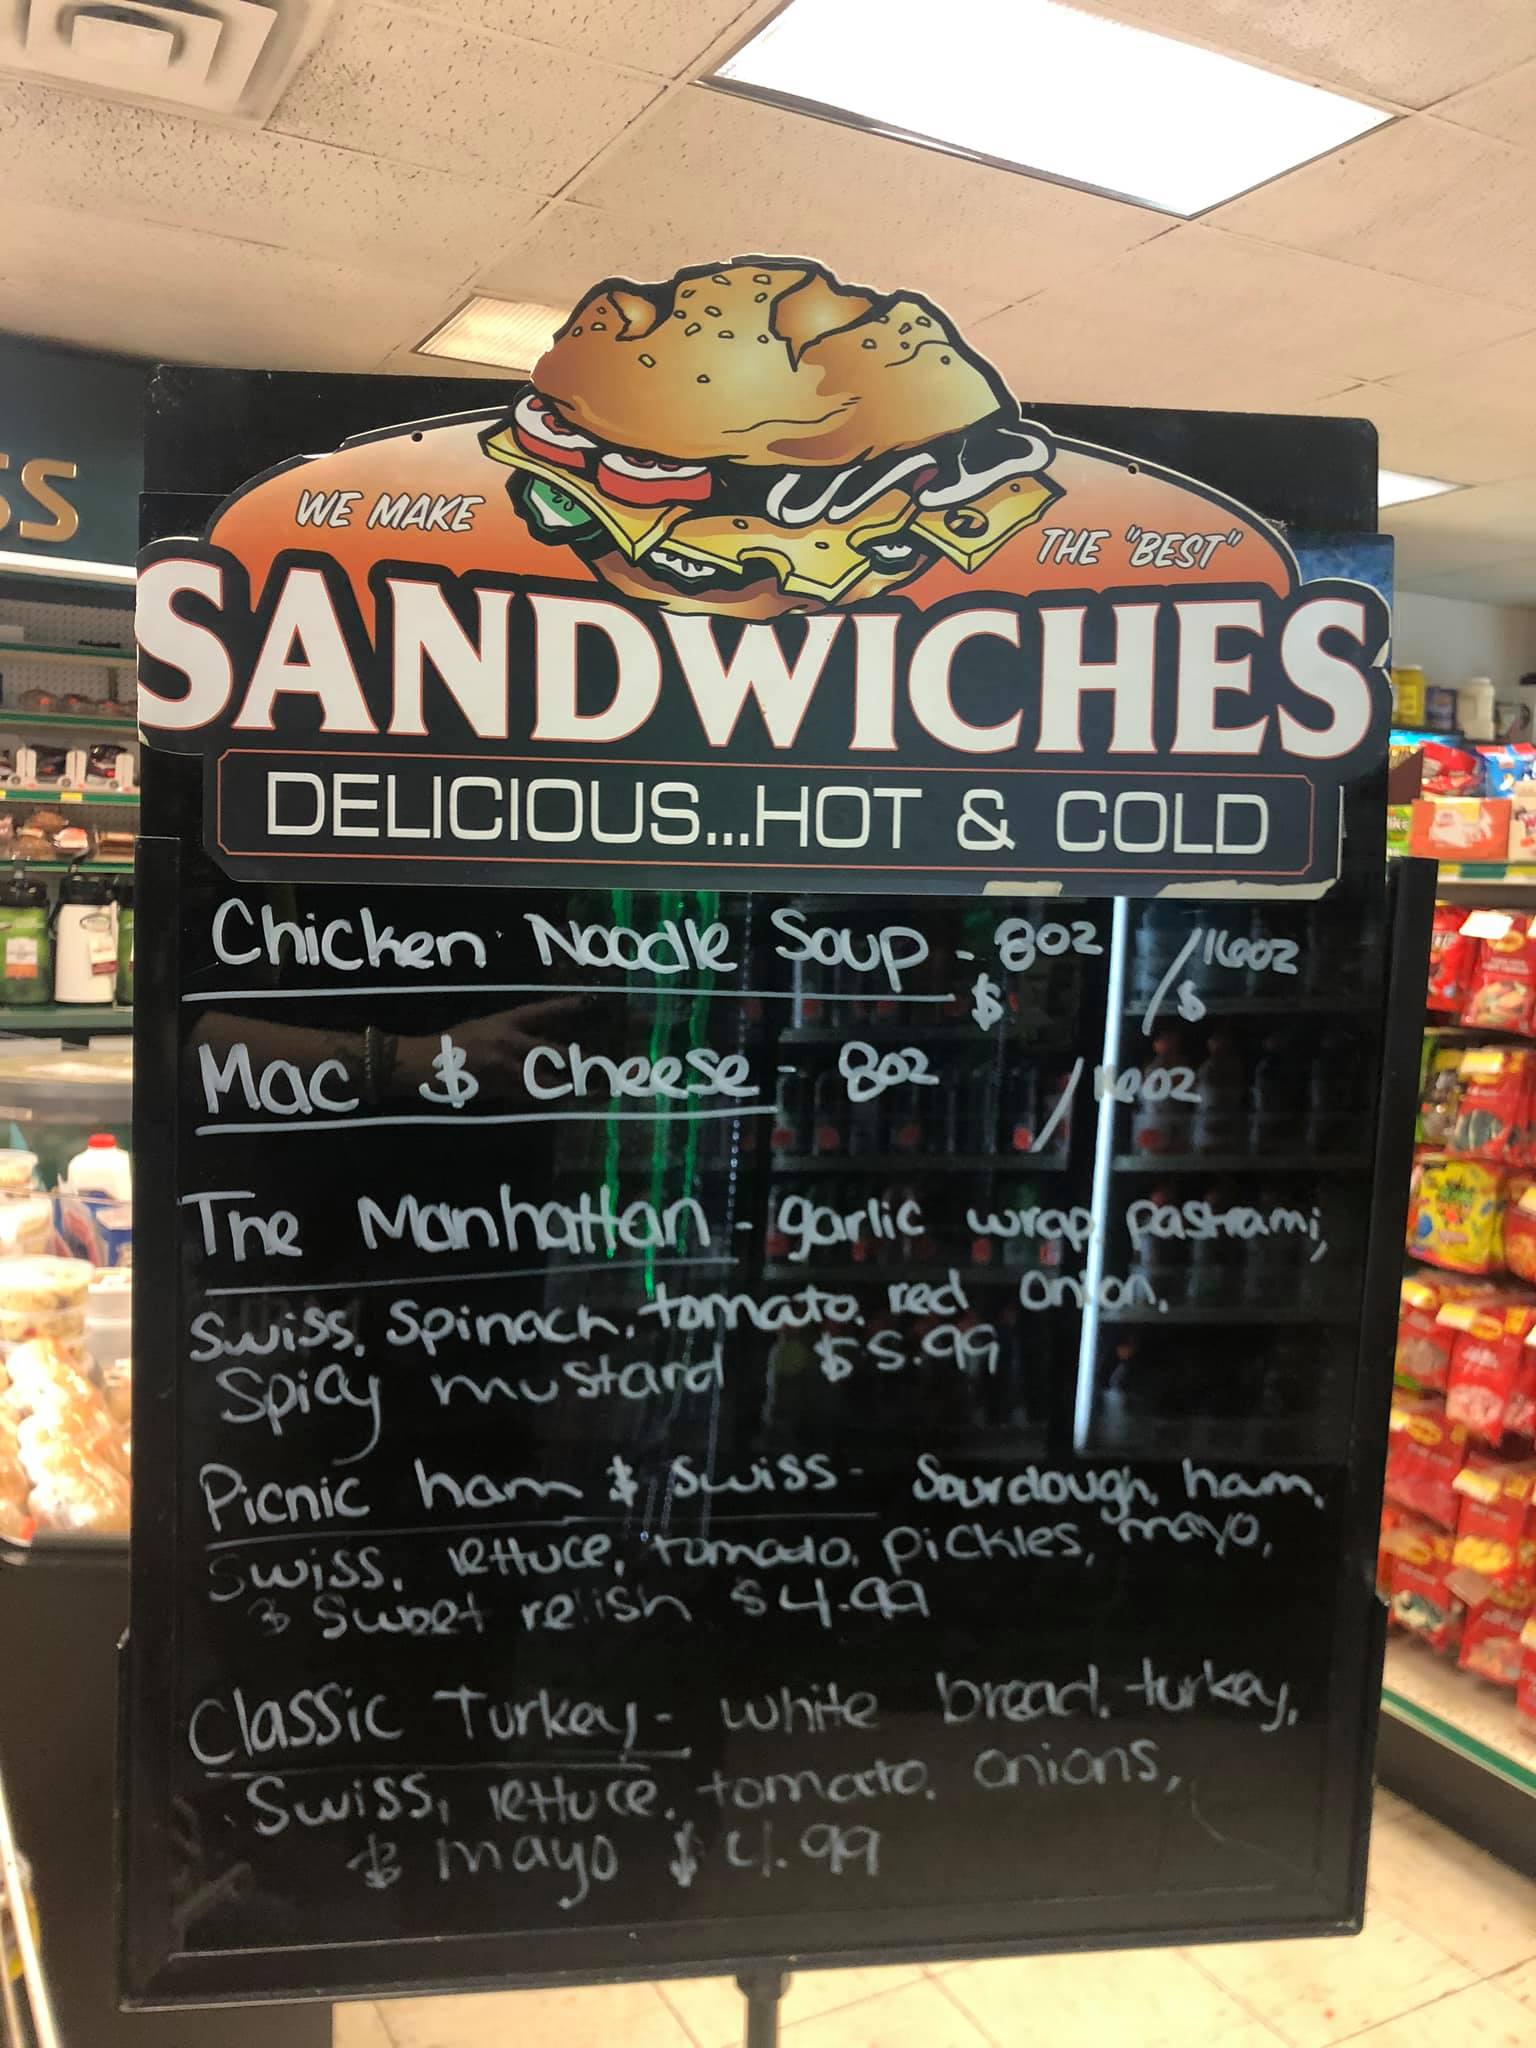 SS
WE MAKE THE "BEST"
SANDWICHES
DELICIOUS...HOT & COLD
Chicken Noodle Soup - 8oz / 16oz
$ $
Mac & Cheese - 8oz / 16oz
The Manhattan - garlic wrap, pastrami,
Swiss, Spinach, tomato, red onion,
Spicy mustard $5.99
Picnic ham & Swiss - Sourdough, ham,
Swiss, lettuce, tomato, pickles, mayo,
& Sweet relish $4.99
Classic Turkey - white bread, turkey,
Swiss, lettuce, tomato, onions,
& mayo $4.99